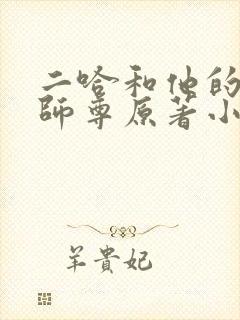 二哈和他的
師尊原著小
羊貴妃